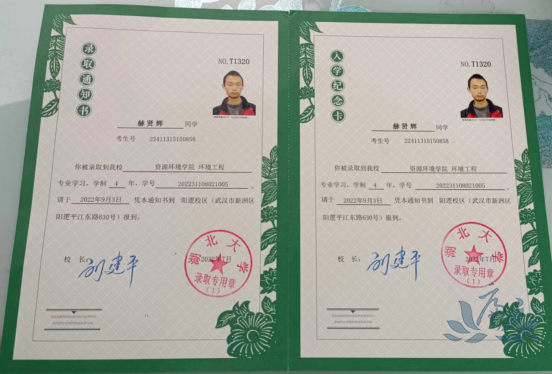 录取通知书
NO.T1320
赫贤辉 同学
考生号 22411315150838
你被录取到我校 资源环境学院 环境工程
专业学习，学制 4 年，学号 202231108021005 ，
请于 2022年9月3日 凭本通知书到 阳逻校区（武汉市新洲区
阳逻平江东路630号）报到。
校 长：
刘建平
2022年7月
湖北大学
录取专用章
（1）
入学纪念卡
NO.T1320
赫贤辉 同学
考生号 22411315150838
你被录取到我校 资源环境学院 环境工程
专业学习，学制 4 年，学号 202231108021005 ，
请于 2022年9月3日 凭本通知书到 阳逻校区（武汉市新洲区
阳逻平江东路630号）报到。
校 长：
刘建平
2022年7月
湖北大学
录取专用章
（1）